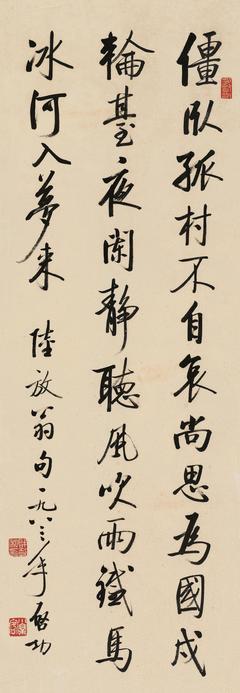 僵臥孤村不自哀尚思為國戍
輪臺夜闌靜聽風吹雨鐵馬
冰河入夢来
陸放翁句一九八三年啓功